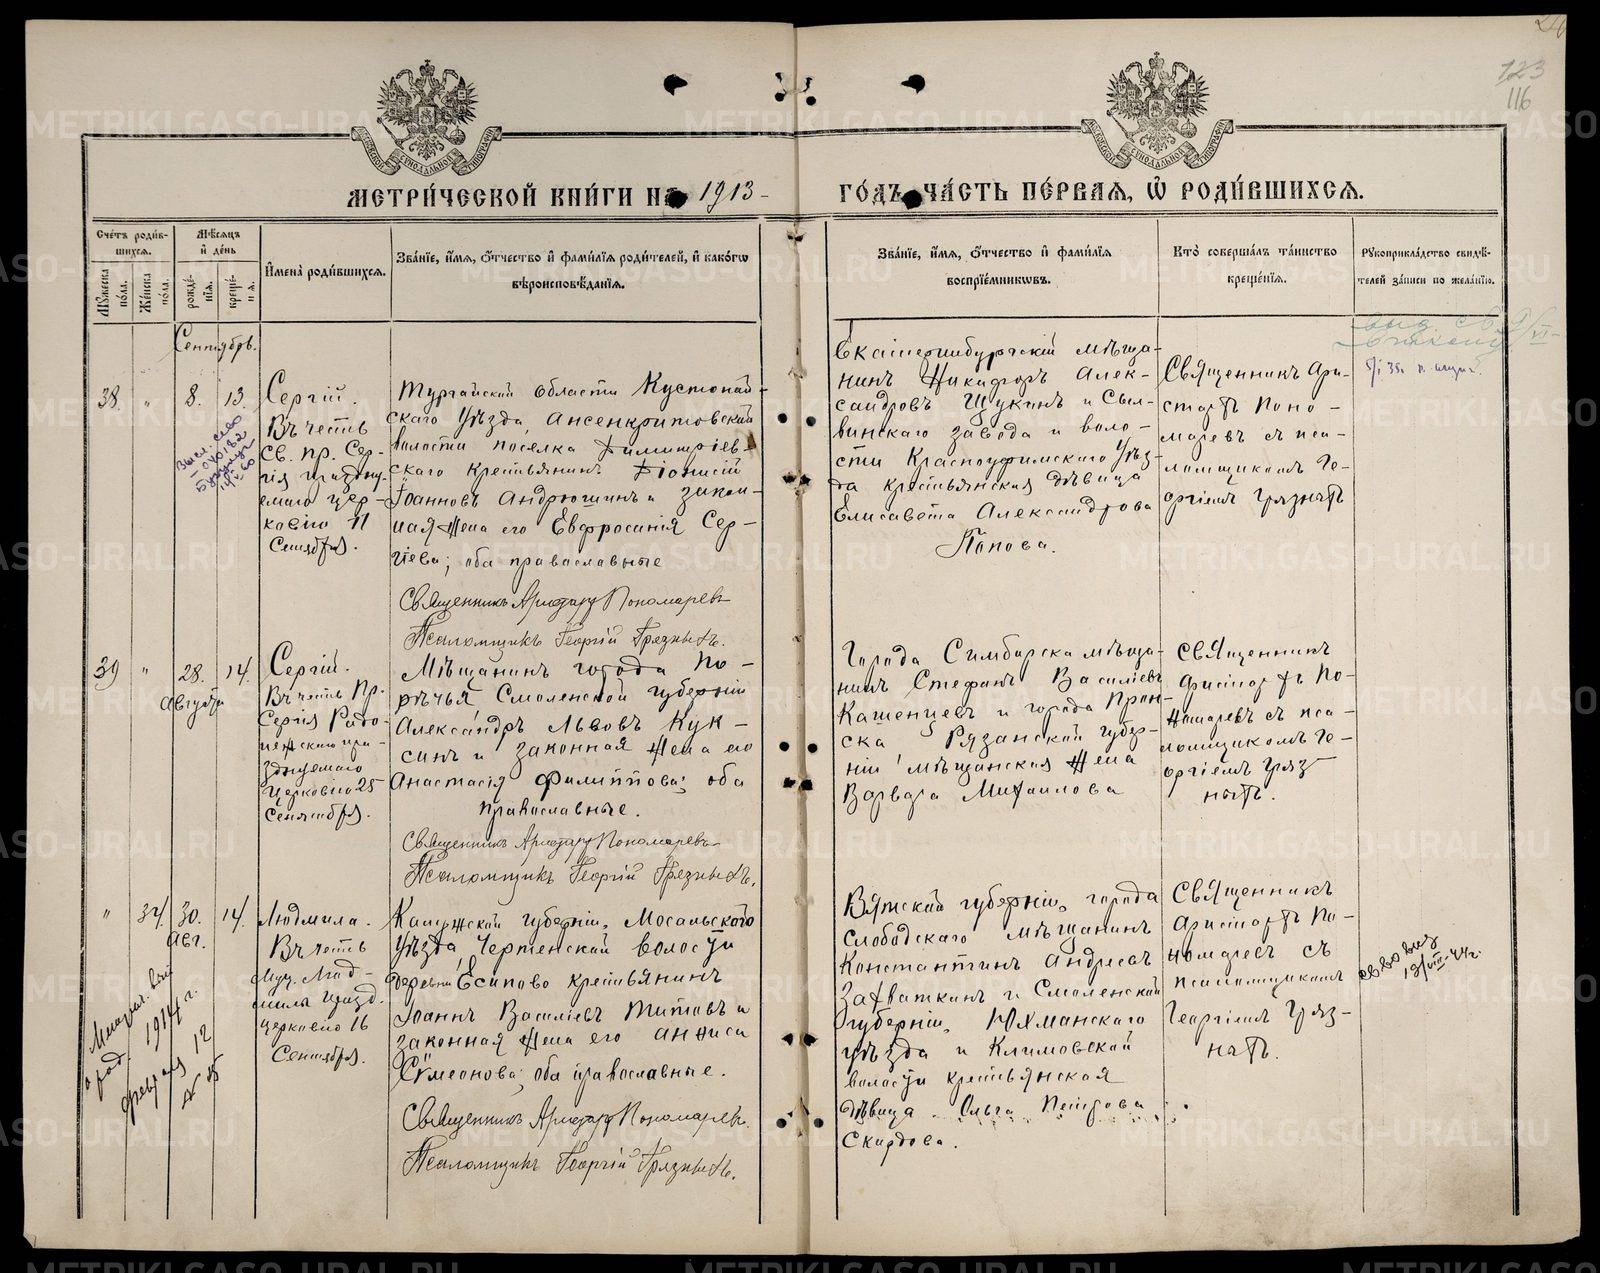 123
116
МЕТРИ́ЧЕСКОЙ КНИ́ГИ НА 1913
ГО́ДЪ ЧА́СТЬ ПЕ́РВАЯ, Ѡ РОДИ́ВШИХСЯ.
Сче́тъ роди́в-
шихся.
Му́жеска по́ла.
Же́нска по́ла.
Мѣ́сяцъ
и де́нь
рожде́-
нїя.
креще́-
нїя.
Имена̀ роди́вшихся.
Зва́нїе, и́мя, о́тчество и фами́лїя роди́телей, и како́гѡ
вѣроисповѣ́данїя.
Зва́нїе, и́мя, о́тчество и фами́лїя
воспрїе́мникѡвъ.
Кто̀ соверша́лъ та́инство
креще́нїя.
Рукоприкла́дство свидѣ́-
телей за́писи по жела́нїю.
Сентябрь.
38. " 8. 13.
Сергій.
Въ честь
св. пр. Сер-
гія праздну-
емаго цер-
ковію 11
Сентября.
Тургайской области Кустонай-
скаго уѣзда, Ансенкритовской
волости поселка Димитріев-
скаго крестьянинъ Діонисій
Іоанновъ Андрюшинъ и закон-
ная жена его Евфросинія Сер-
гіева; оба православные
Священникъ Аристархъ Пономаревъ
Псаломщикъ Георгій Грязныхъ.
Екатеринбургскій мѣща-
нинъ Никифоръ Алек-
сандровъ Щукинъ и Сыл-
винскаго завода и воло-
сти Красноуфимскаго уѣз-
да крестьянская дѣвица
Елисавета Александрова
Попова.
Священникъ Ари-
стархъ Поно-
маревъ съ пса-
ломщикомъ Ге-
оргіемъ Грязныхъ
39 " 28. 14.
Августа
Сергій.
Въ честь Пр.
Сергія Радо-
нежскаго пра-
зднуемаго
Церковію 25
Сентября.
Мѣщанинъ города По-
рѣчья Смоленской губерніи
Александръ Львовъ Кук-
синъ и законная жена его
Анастасія Филиппова; оба
православные.
Священникъ Аристархъ Пономаревъ
Псаломщикъ Георгій Грязныхъ.
Города Симбирска мѣща-
нинъ Стефанъ Василіевъ
Кашенцевъ и города Прон-
ска Рязанской губер-
ніи мѣщанская жена
Варвара Михаилова
Священникъ
Аристархъ По-
номаревъ съ пса-
ломщикомъ Ге-
оргіемъ Гряз-
ныхъ.
" 34. 30. 14.
Авг.
Людмила.
Въ честь
Муч. Люд-
милы празд.
церковію 16
Сентября.
Калужской губерніи, Мосальскаго
уѣзда, Чертенской волости
деревни Есипово крестьянинъ
Іоаннъ Василіевъ Титовъ и
законная жена его Анисія
Сѵмеонова; оба православные.
Священникъ Аристархъ Пономаревъ.
Псаломщикъ Георгій Грязныхъ.
Вятской губерніи, города
Слободскаго мѣщанинъ
Константинъ Андреевъ
Захваткинъ и Смоленской
губерніи, Юхманскаго
уѣзда и Климовской
волости крестьянская
дѣвица Ольга Петрова
Скирдова.
Священникъ
Аристархъ По-
номаревъ съ
псаломщикомъ
Георгіемъ Гряз-
ныхъ.
1914 г.
февраля 12
№ 15
св-во выд
13/VIII-44г.
METRIKI.GASO-URAL.RU